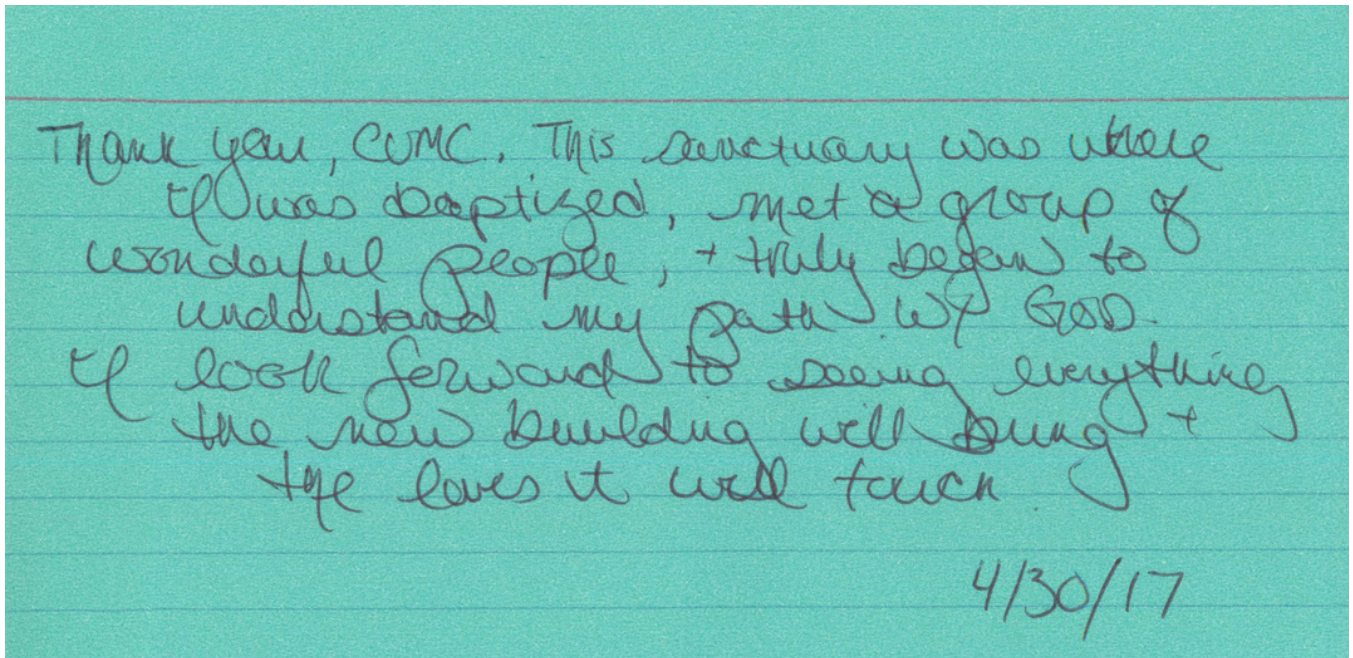 Thank you, CUMC. This sanctuary was where
I was baptized, met a group of
wonderful people, + truly began to
understand my path w/ GOD.
I look forward to seeing everything
the new building will bring +
the loves it will touch
4/30/17